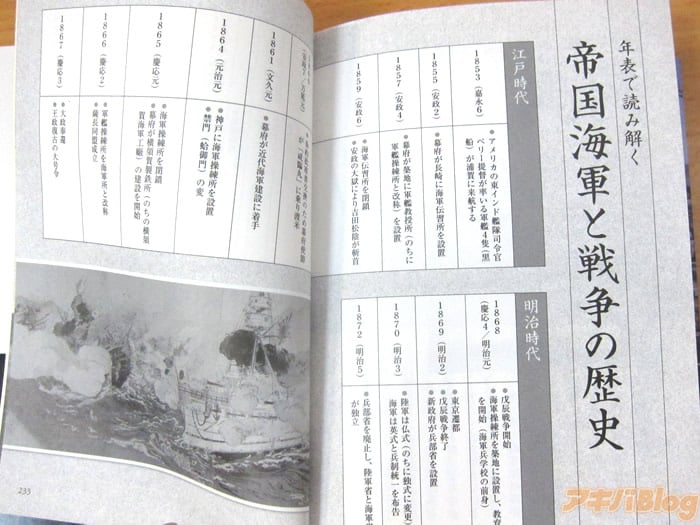 年表で読み解く
帝国海軍と戦争の歴史
江戸時代
1853（嘉永6）
●アメリカの東インド艦隊司令官
ペリー提督が率いる軍艦4隻（黒
船）が浦賀に来航する
1855（安政2）
●幕府が長崎に海軍伝習所を設置
1857（安政4）
●幕府が築地に軍艦教授所（のちに
軍艦操練所と改称）を設置
1859（安政6）
●海軍伝習所を閉鎖
●安政の大獄により吉田松陰が斬首
明治時代
1868
（慶応4／明治元）
●戊辰戦争開始
●海軍操練所を築地に設置し、教育
を開始（海軍兵学校の前身）
1869（明治2）
●東京遷都
●戊辰戦争終了
新政府が兵部省を設置
1870（明治3）
●陸軍は仏式（のちに独式に変更）
海軍は英式と兵制統一を布告
1872（明治5）
●兵部省を廃止し、陸軍省と海軍
が独立
（安政7／万延元）
のため幕府使節
が「咸臨丸」に乗り渡米
1861（文久元）
●幕府が近代海軍建設に着手
1864（元治元）
●神戸に海軍操練所を設置
●禁門（蛤御門）の変
1865（慶応元）
●海軍操練所を閉鎖
●幕府が横須賀製鉄所（のちの横須
賀海軍工廠）の建設を開始
1866（慶応2）
●軍艦操練所を海軍所と改称
●薩長同盟成立
1867（慶応3）
●大政奉還
●王政復古の大号令
235
アキバBlog